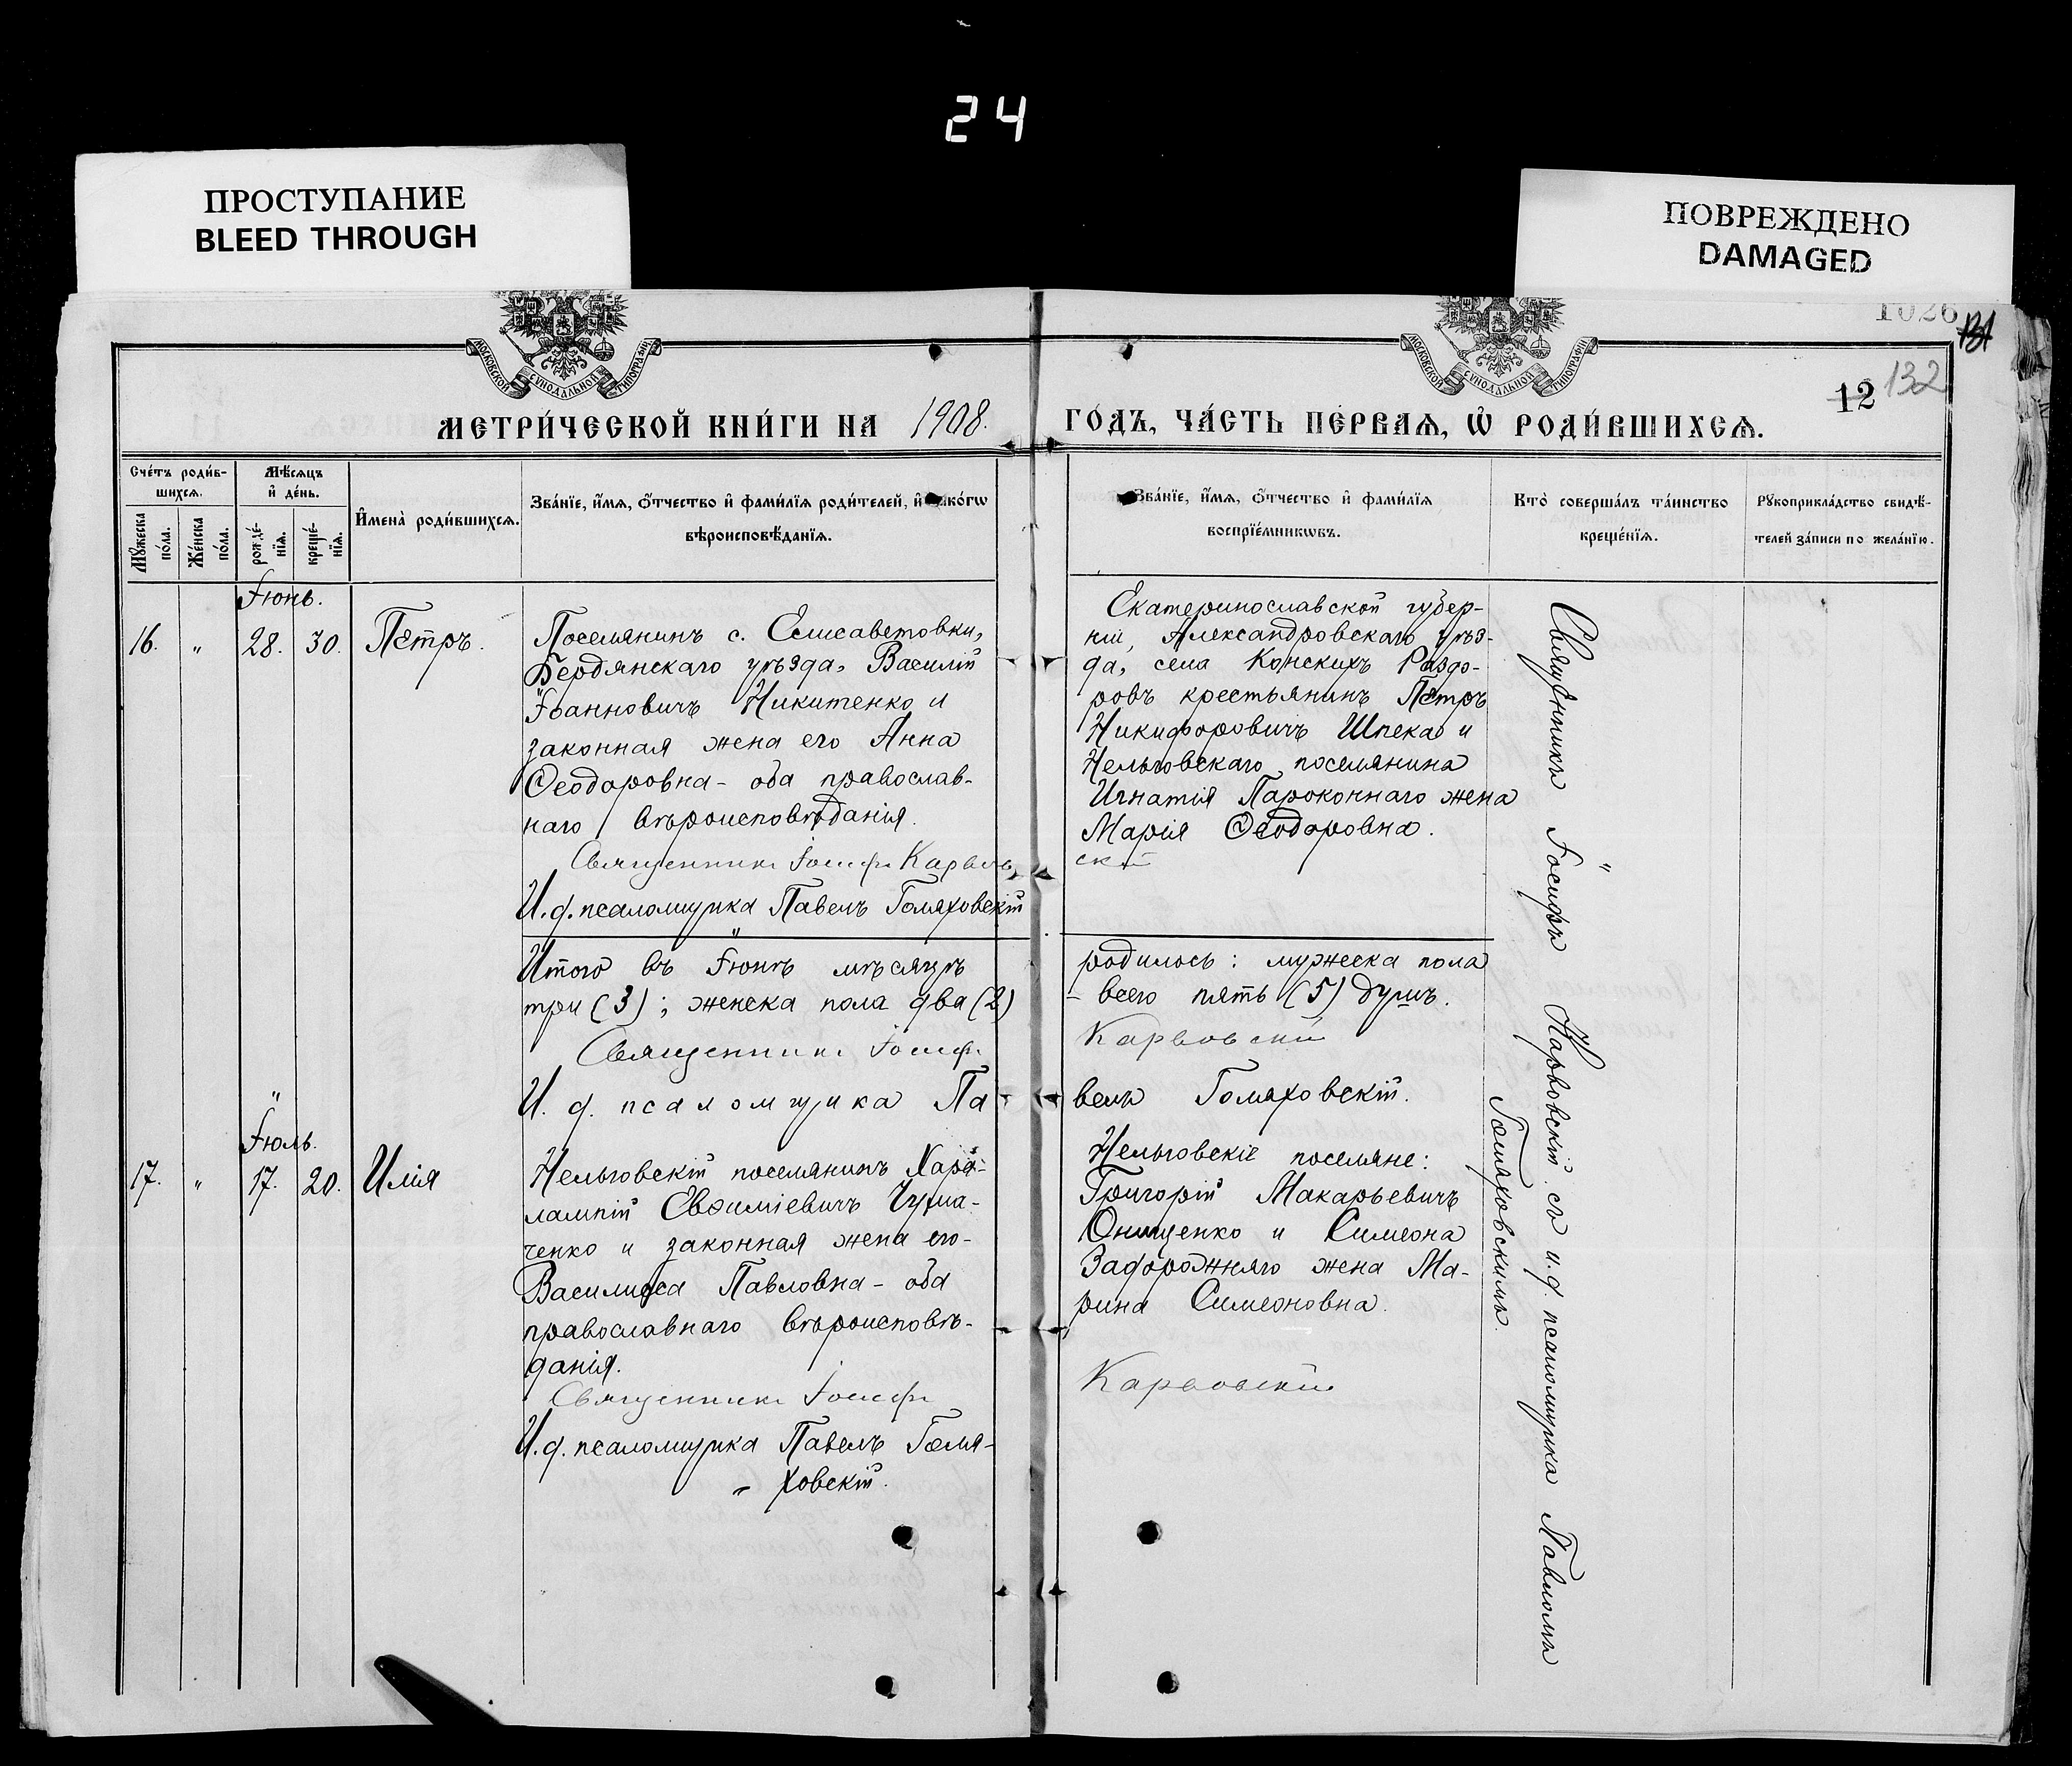 24
ПРОСТУПАНИЕ
BLEED THROUGH
ПОВРЕЖДЕНО
DAMAGED
МОСКОВСКОЙ СѴНОДАЛЬНОЙ ТИПОГРАФІИ
МОСКОВСКОЙ СѴНОДАЛЬНОЙ ТИПОГРАФІИ
1026
131
12 132
МЕТРИ́ЧЕСКОЙ КНИ́ГИ НА 1908.
ГО́ДЪ, ЧА́СТЬ ПЕ́РВАѦ, Ѡ҆ РОДИ́ВШИХСѦ.
Сче́тъ роди́в-
шихсѧ.
Мꙋ́жеска
по́ла.
Же́нска
по́ла.
Мѣ́сѧцъ
и҆ де́нь.
рожде́-
нїѧ.
креще́-
нїѧ.
И҆мена̀ роди́вшихсѧ.
Зва́нїе, и҆́мѧ, ѻ҆́тчество и҆ фами́лїѧ роди́телей, и҆ како́гѡ
вѣроисповѣ́данїѧ.
Зва́нїе, и҆́мѧ, ѻ҆́тчество и҆ фами́лїѧ
воспрїе́мникѡвъ.
Кто̀ соверша́лъ та́инство
креще́нїѧ.
Рꙋкоприкла́дство свидѣ́-
телей за́писи по жела́нїю.
Іюнь.
16. " 28. 30. Петръ.
Поселянинъ с. Елисаветовки,
Бердянскаго уѣзда, Василій
Іоанновичъ Никитенко и
законная жена его Анна
Ѳеодоровна - оба православ-
наго вѣроисповѣданія.
Священникъ Іосифъ Карвов
И. д. псаломщика Павелъ Голяховскій
Екатеринославской губер-
ніи, Александровскаго уѣз-
да, села Конскихъ Раздо-
ровъ крестьянинъ Петръ
Никифоровичъ Шпека и
Нельговскаго поселянина
Игнатія Пароконнаго жена
Марія Ѳеодоровна.
скій
Итого въ Іюнѣ мѣсяцѣ
три (3); женска пола два (2)
Священникъ Іосифъ
И. д. псаломщика Па-
родилось: мужеска пола
- всего пять (5) душъ.
Карвовскій
велъ Голяховскій.
Іюль.
17. " 17. 20. Илія
Нельговскій поселянинъ Хара-
лампій Евѳиміевичъ Чума-
ченко и законная жена его-
Василисса Павловна - оба
православнаго вѣроисповѣ-
данія.
Священникъ Іосифъ
И. д. псаломщика Павелъ Голя-
ховскій.
Нельговскіе поселяне:
Григорій Макарьевичъ
Онищенко и Симеона
Задорожняго жена Ма-
рина Симеоновна.
Карвовскій
Священникъ Іосифъ Карвовскій съ и. д. псаломщика Павломъ
Голяховскимъ.